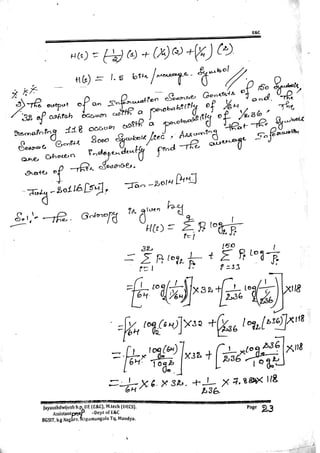 E&C
H(s) = (1/2)(1) + (1/4)(2) + (1/4)(2)
H(s) = 1.5 bits / message - Symbol
3) The output of an Information Source Consists of 150 Symbols,
32 of which occurs with a probability of 1/64 and. The
Remaining 118 occurs with a probability of 1/236, The
Source Emits 8000 Symbols/sec, Assuming that The Symbols
are chosen independently find The average Information
rate of This Source.
- July-2016[5M], Jan-2014[4M]
Sol:- The Entropy is given by
H(s) = Σ Pi log 1/Pi
= Σ Pi log2 1/Pi + Σ Pi log 1/Pi
= [1/64 log (1/(1/64))] x32 + [1/236 log (1/(1/236))] x118
= [1/64 log(64)] x32 + [1/236 log2(236)] x118
= [1/64 x log(64)/log2] x32 + [1/236 x log236/log2] x118
= 1/64 x 6 x 32 + 1/236 x 7.88 x 118
Page 23
BE (E&C), M.tech (DECS).
Assistant -Dept of E&C
BGSIT, Tq, Mandya.